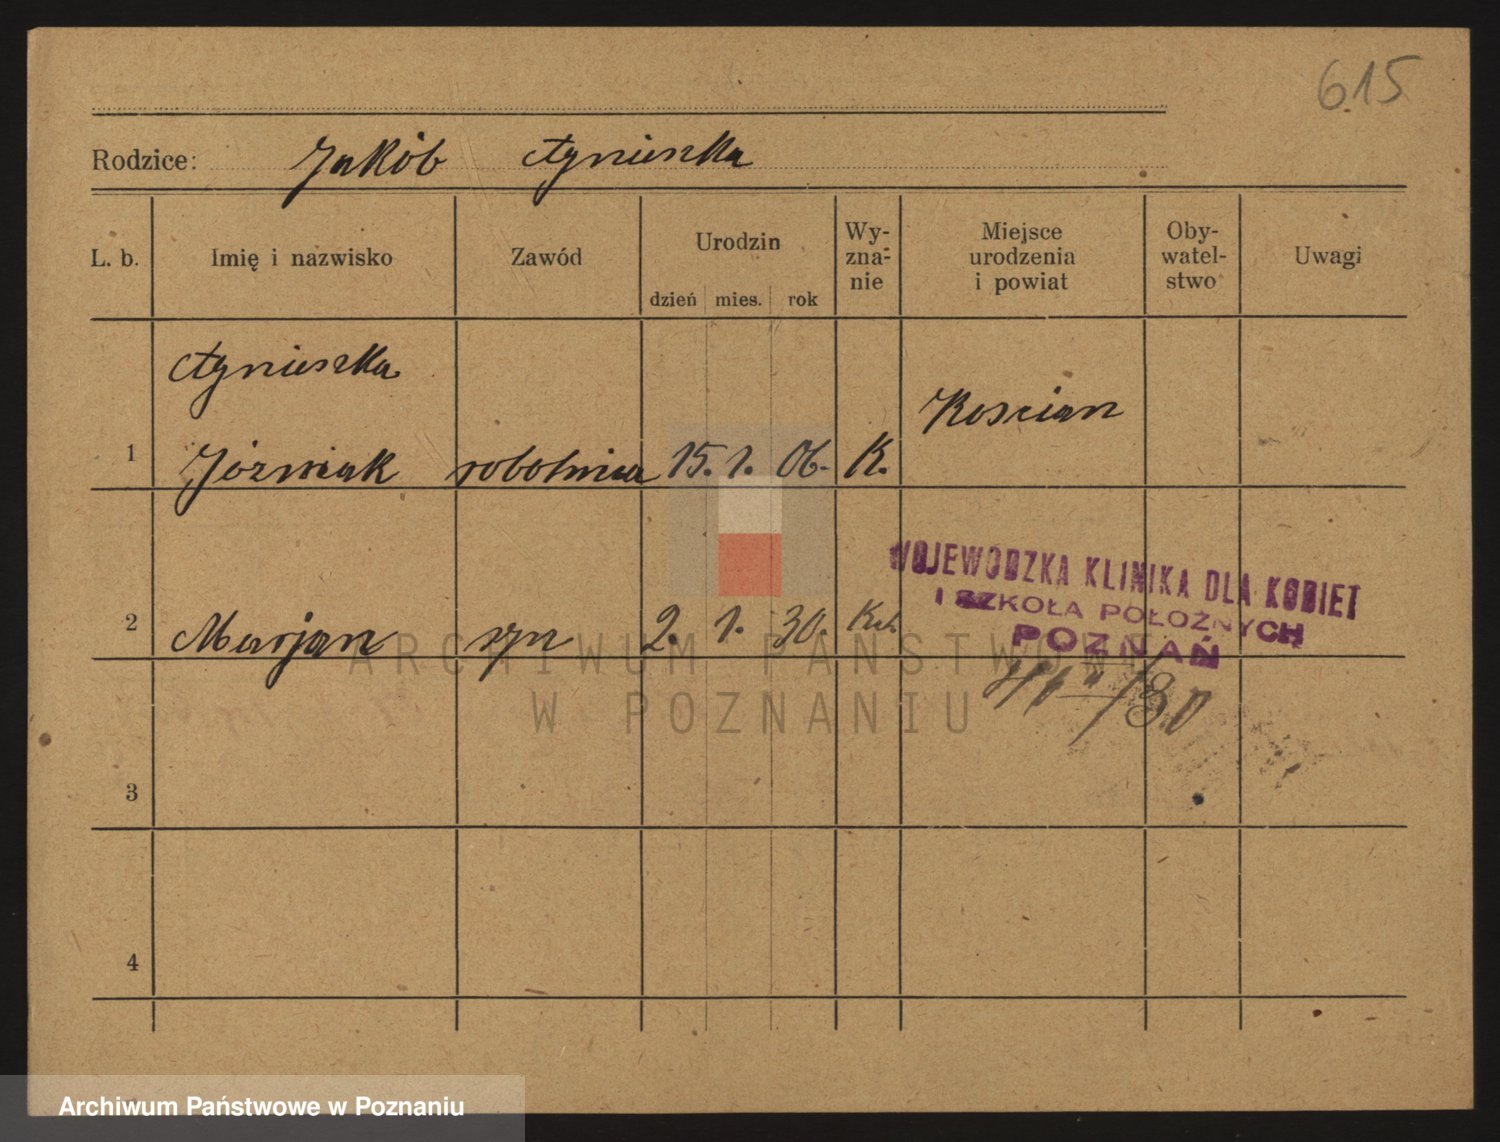 615
Rodzice: Jakób Agnieszka
L. b.
Imię i nazwisko
Zawód
Urodzin
dzień mies. rok
Wy-
zna-
nie
Miejsce
urodzenia
i powiat
Oby-
watel-
stwo
Uwagi
Agnieszka
Kościan
1 Józwiak robotnica 15. 1. 06. K.
WOJEWÓDZKA KLINIKA DLA KOBIET
I SZKOŁA POŁOŻNYCH
POZNAŃ
2 Marjan syn 2. 1. 30. Kat.
ARCHIWUM PAŃSTWOWE
W POZNANIU
3
4
Archiwum Państwowe w Poznaniu